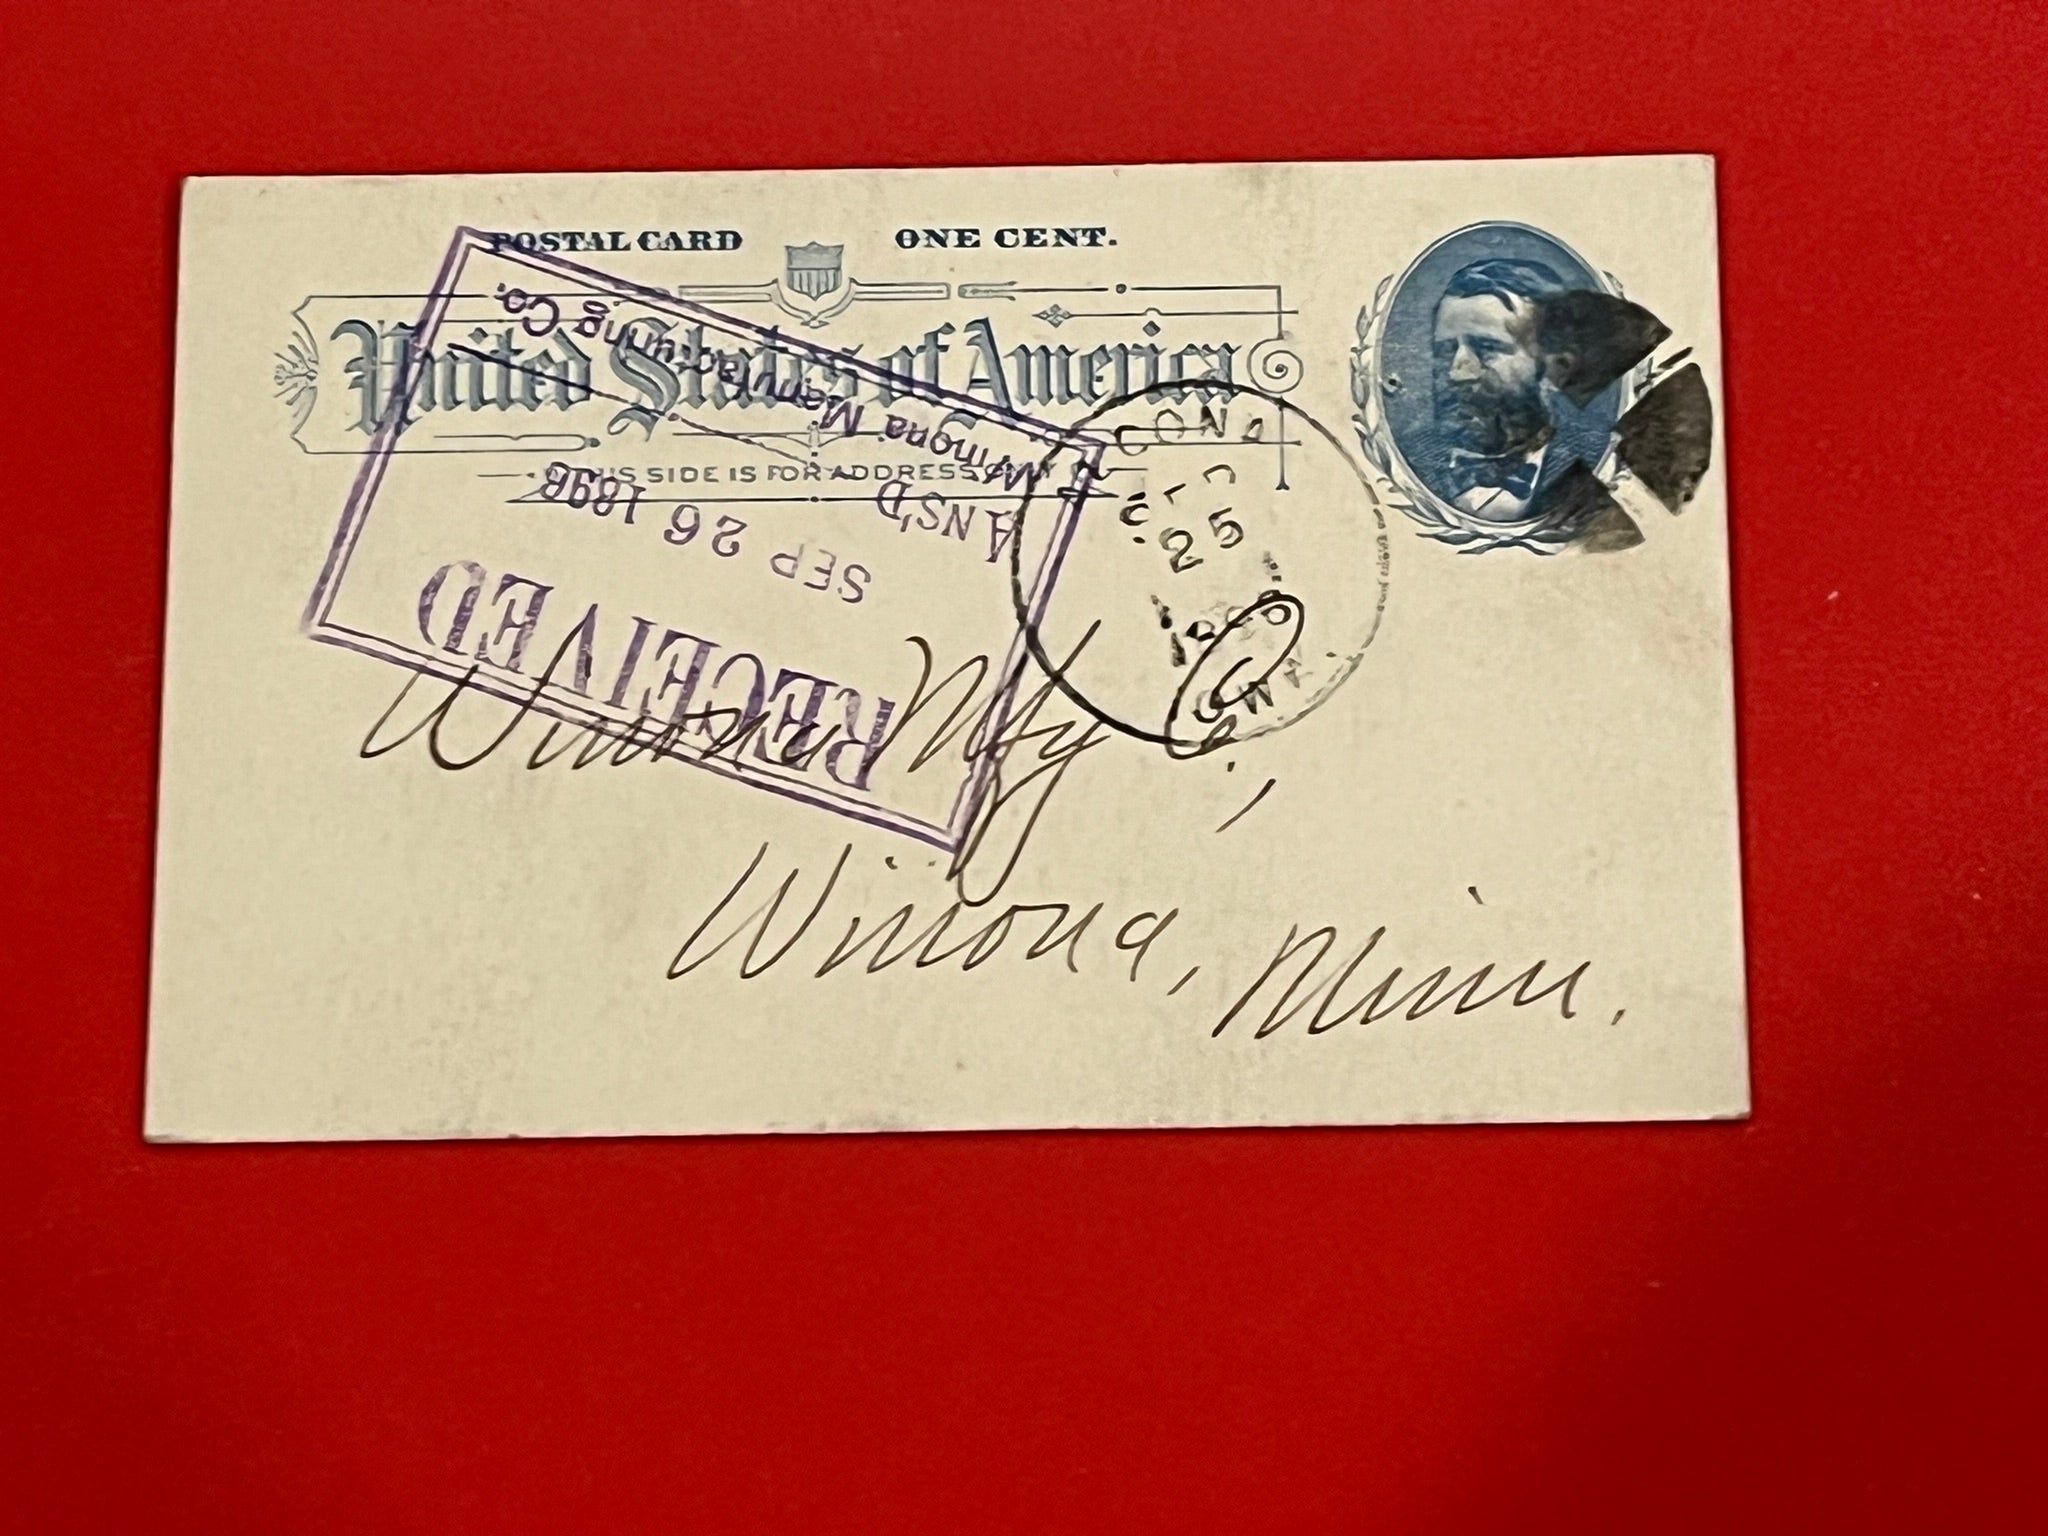 POSTAL CARD ONE CENT.
United States of America
THIS SIDE IS FOR ADDRESS ONLY
RECEIVED
SEP 26 1893
ANS'D
Winona Manufacturing Co.
25
Winona Mfg Co.,
Winona, Minn.